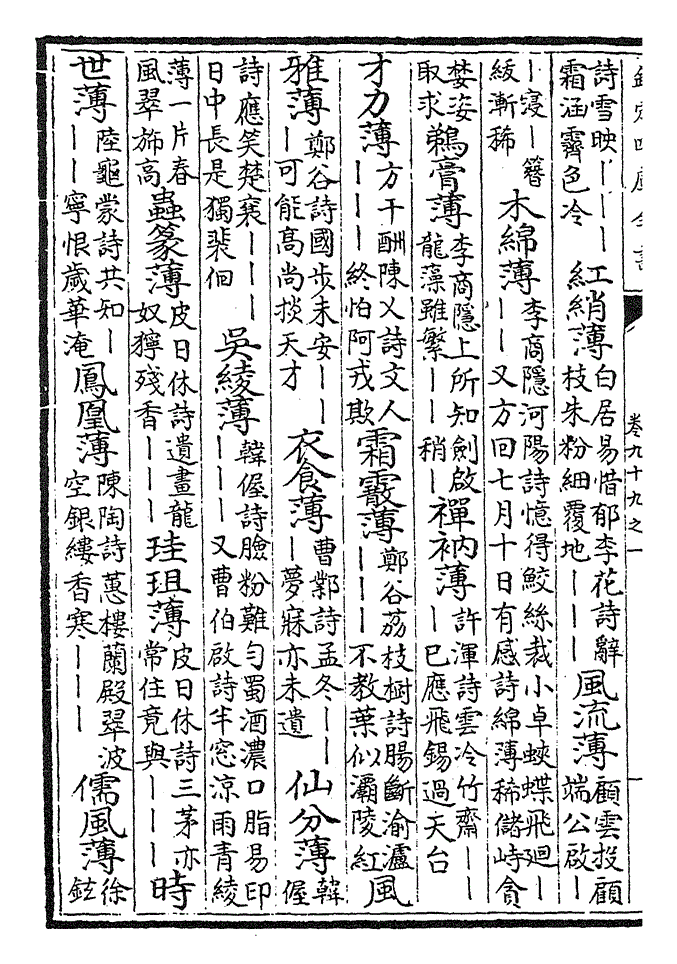 欽定四庫全書 卷九十九之一
詩雪映｜｜｜霜涵霽色冷 紅綃薄 白居易惜郁李花詩辭枝朱粉細覆地｜｜｜ 風流薄 顧雲投顧端公啟｜
｜寖｜簪綬漸稀 木綿薄 李商隱河陽詩憶得鮫絲裁小卓蛺蝶飛廻｜｜｜又方回七月十日有感詩綿薄稀儲峙貪
婪姿取求 鵜膏薄 李商隱上所知劍啟龍藻雖繁｜｜稍｜ 禪衲薄 許渾詩雲冷竹齋｜｜｜已應飛錫過天台
才力薄 方干酬陳乂詩文人｜｜｜終怕阿戎欺 霜霰薄 鄭谷荔枝樹詩腸斷渝瀘｜｜｜不教葉似灞陵紅 風
雅薄 鄭谷詩國步未安｜｜｜可能高尚掞天才 衣食薄 曹鄴詩孟冬｜｜｜夢寐亦未遺 仙分薄 韓偓
詩應笑楚襄｜｜｜日中長是獨裴佪 吳綾薄 韓偓詩臉粉難勻蜀酒濃口脂易印｜｜｜又曹伯啟詩半窓涼雨青綾
薄一片春風翠斾高 蟲篆薄 皮日休詩遺畫龍奴獰殘香｜｜｜ 珪珇薄 皮日休詩三茅亦常住竟與｜｜｜ 時
世薄 陸龜蒙詩共知｜｜｜寧恨歲華淹 鳳凰薄 陳陶詩蕙樓蘭殿翠波空銀縷香寒｜｜｜ 儒風薄 徐鉉